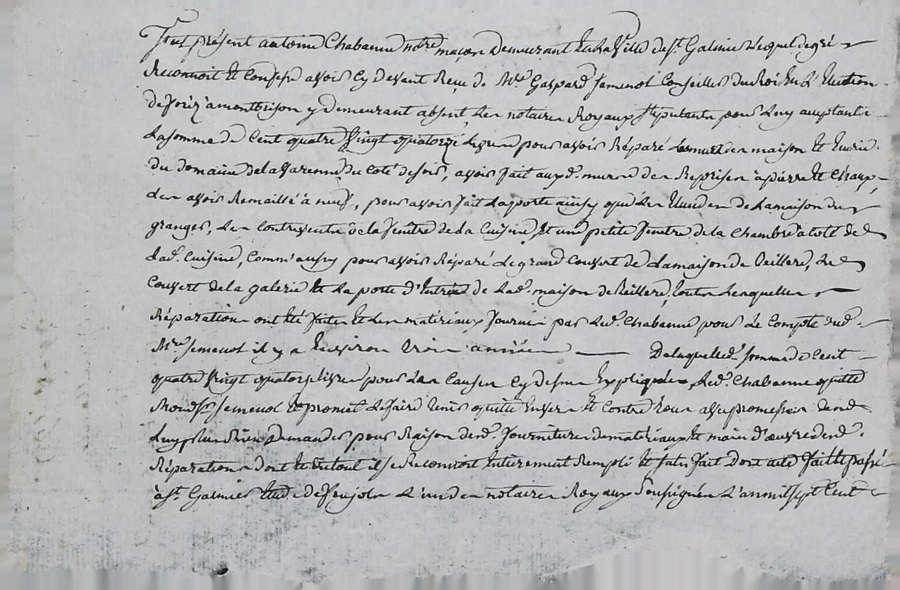 Fut présent antoine Chabanne mre maçon demeurant En la Ville de st. Galmier Lequel de gré
Reconnoit Et Confesse avoir Cy devant Reçu de Mre Gaspard Conseiller du Roi En L'Election
de forez a montbrison y demeurant absent Les notaires Royaux stipulants pour Luy acceptants
La somme de Cent quatre Vingt quatorze Livres pour avoir Réparé Les murs des maison Et Ecurie
du domaine de la Varenne du Coté de soir, avoir fait auxd. murs des Reprises à pierre Et Chaux,
Les avoir Remaillé à neuf, pour avoir fait La porte ainsy que Les de La maison du
granger, Les Contrevents de la fenetre de la Cuisine Et une petite fenetre de la Chambre a coté de
Lad. Cuisine, Comm'aussy pour avoir Réparé Le grand Couvert de La maison de Veillere, Le
Couvert de la galerie Et La porte d'Entrée de Lad. maison de Veillere, toutes Lesquelles
Réparations ont été faites Et Les matériaux fournis par Led. Chabanne pour Le Compte dud.
Mre il y a Environ trois années De laquelle somme de Cent
quatre Vingt quatorze livres pour Les Causes Cy dessus Expliquées, Led. Chabanne quitte
Mond. sr. Et promet Le faire tenir quitte Envers Et Contre tous avec promesse de ne
Luy plus Rien demander pour Raison desd. fournitures de matériaux Et main d'œuvre desd.
Réparations dont Et du tout il se Reconnoit Entierement Rempli Et satisfait Dont acte fait Et passé
à st. Galmier Etude de L'un des notaires Royaux soussignés L'an mil sept Cent